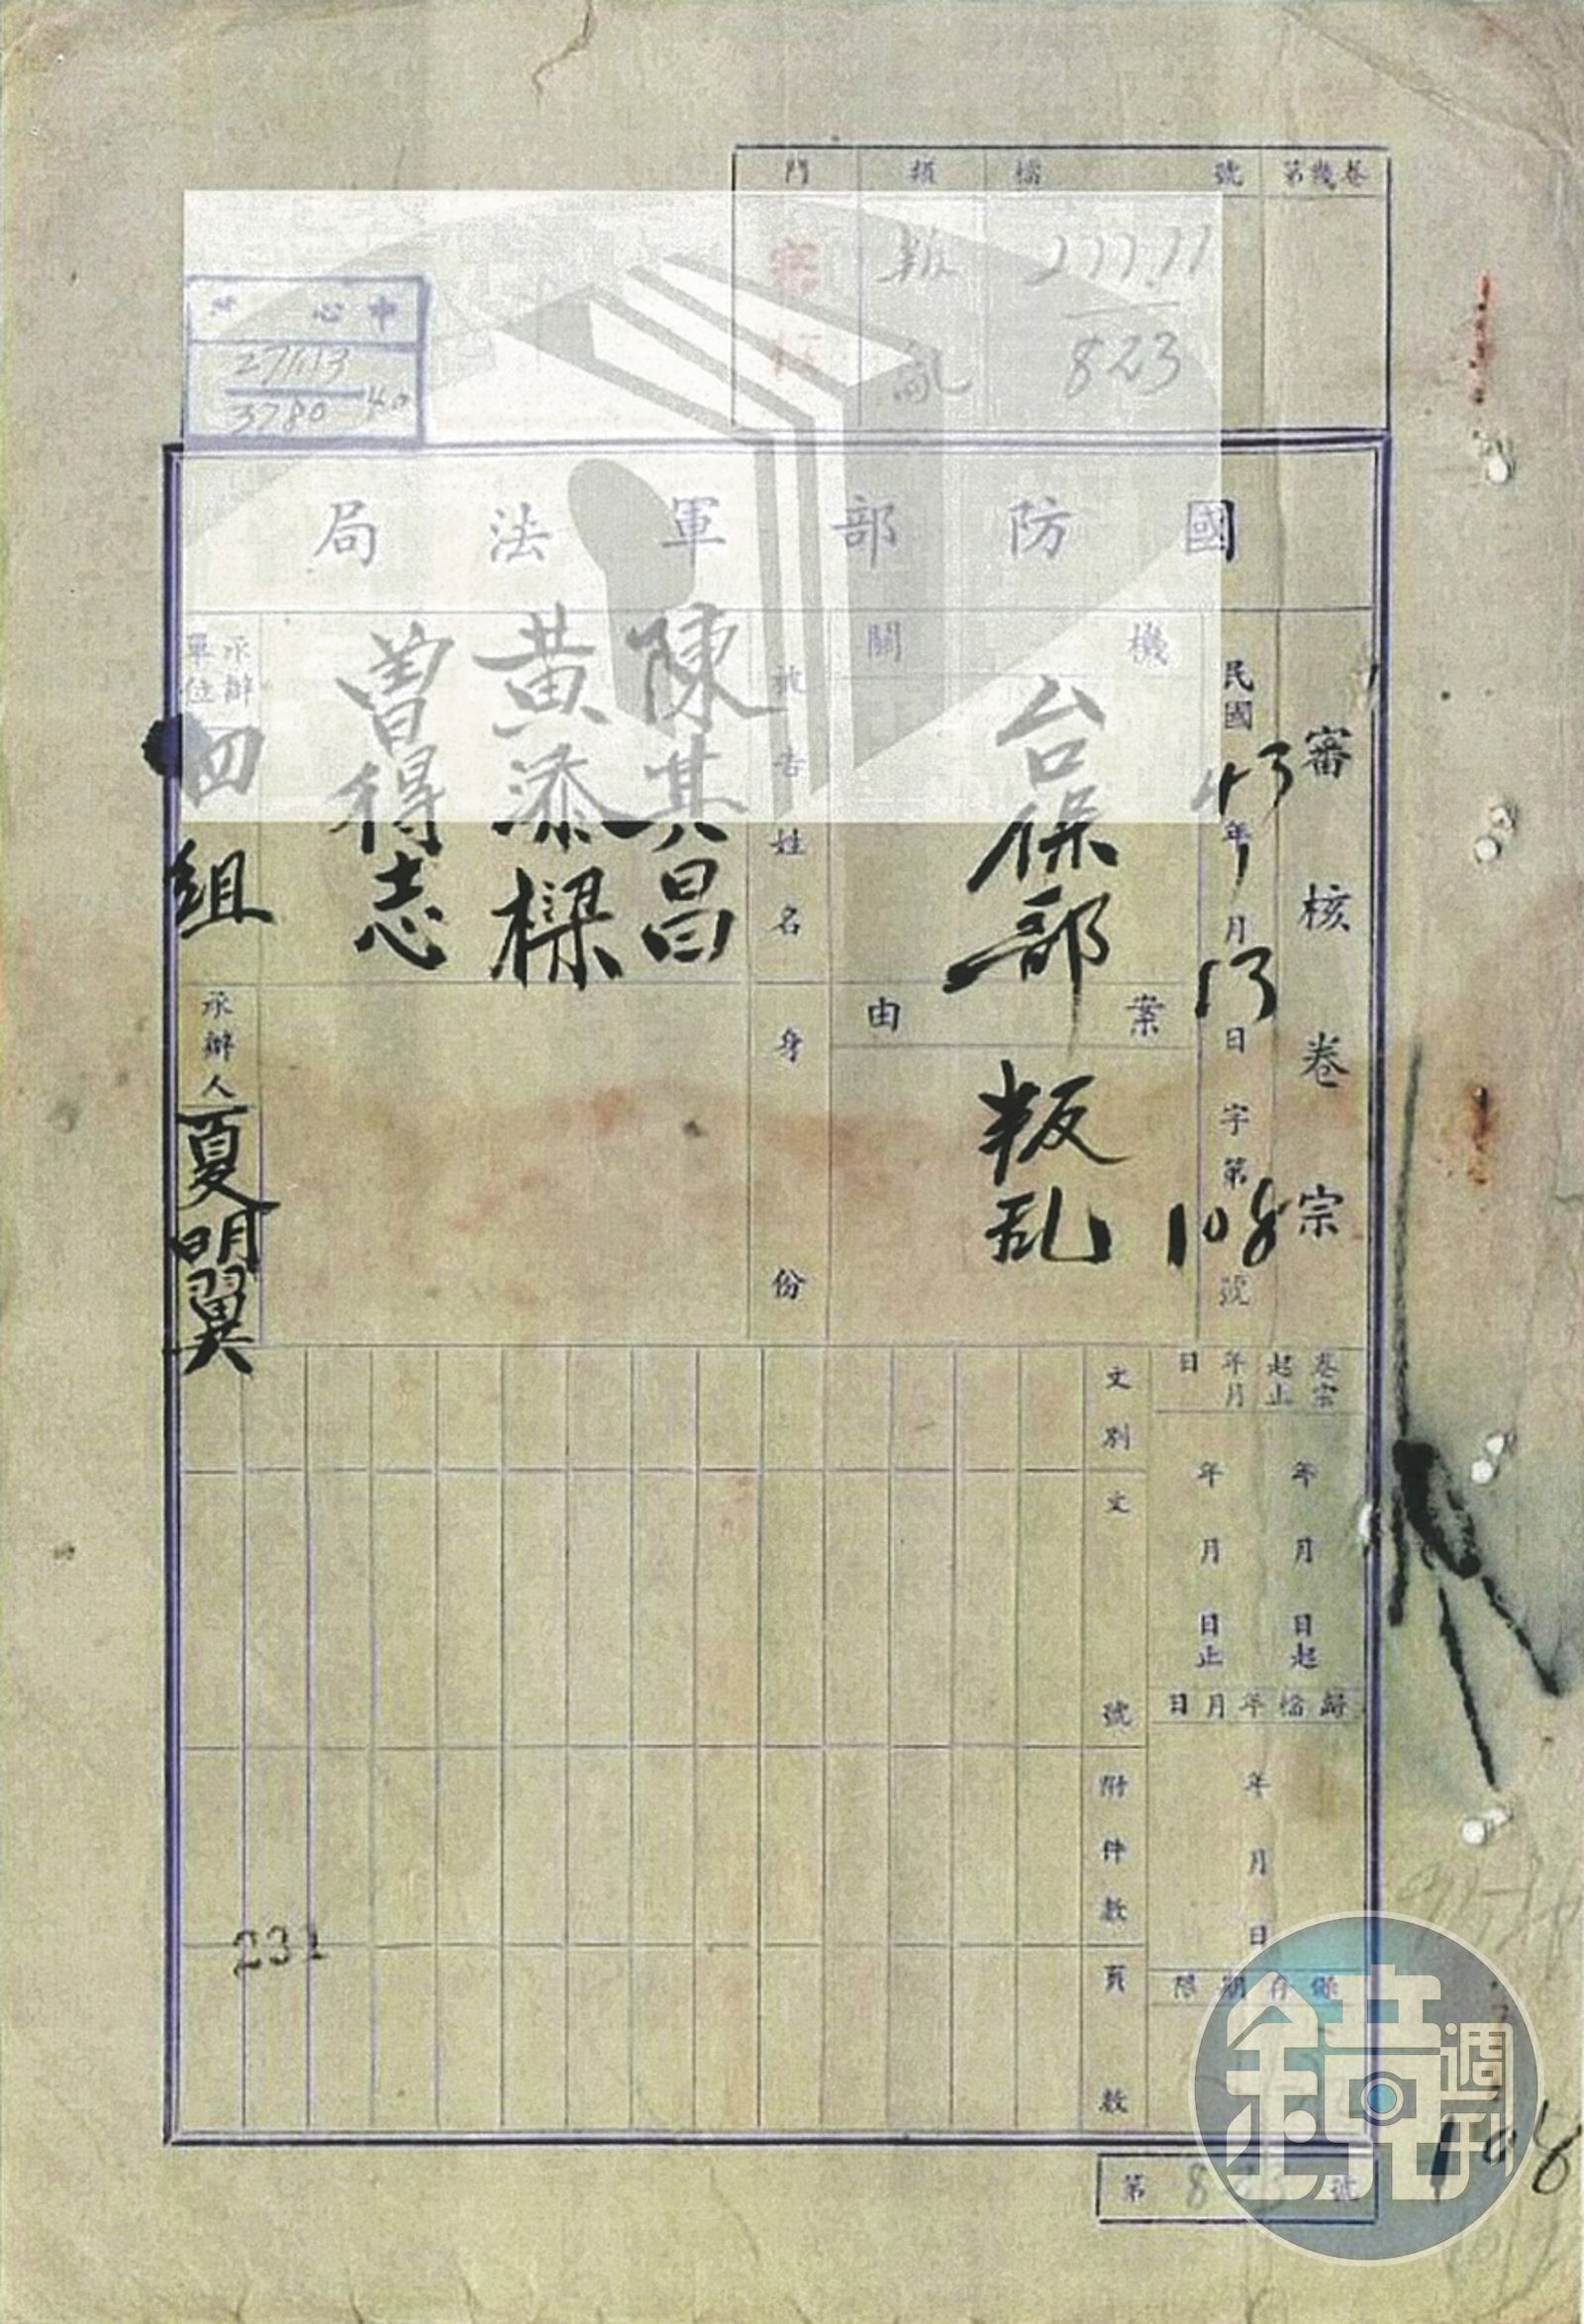 第幾卷
檔號
類
門
叛亂
277.11
823
中心
3780
國防部軍法局
審核卷宗
民國43年1月13日字第108號
機關
台保部
案由
叛乱
被告姓名
陳其昌
黃添樑
曾得志
身份
承辦單位
四組
承辦人
夏明翼
卷宗起止年月日
年月日起
年月日止
歸檔年月日
年月日
保存期限
文別
文號
附件數
頁數
231
第823號
108
鏡週刊